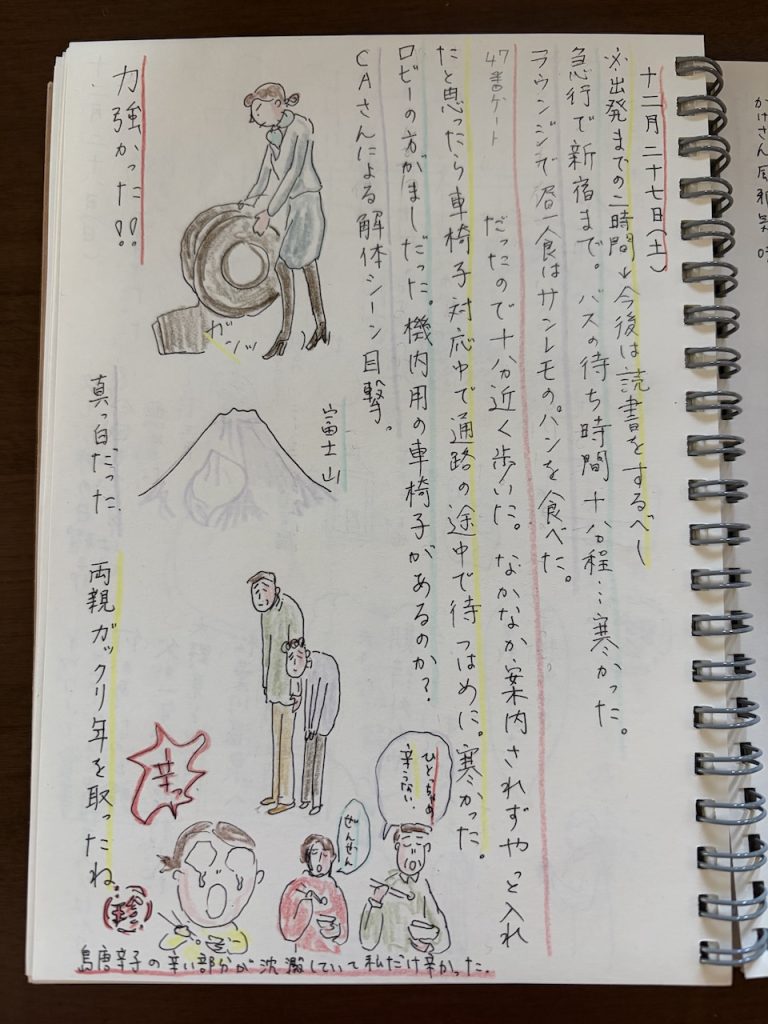 十二月二十七日(土)
※出発までの二時間→今後は読書をするべし
急行で新宿まで。バスの待ち時間十分程…寒かった。
ラウンジで昼食はサンレモのパンを食べた。
47番ゲート
だったので十分近く歩いた。なかなか案内されずやっと入れ
たと思ったら車椅子対応中で通路の途中で待つはめに。寒かった。
ロビーの方がましだった。機内用の車椅子があるのか?
CAさんによる解体シーン目撃。
ガシッ
力強かった!!
富士山
真っ白だった。
両親ガックリ年を取ったね。
ひとっちゃめ
辛くない
ぜんぜん
辛っ
島唐辛子の辛い部分が沈澱していて私だけ辛かった。